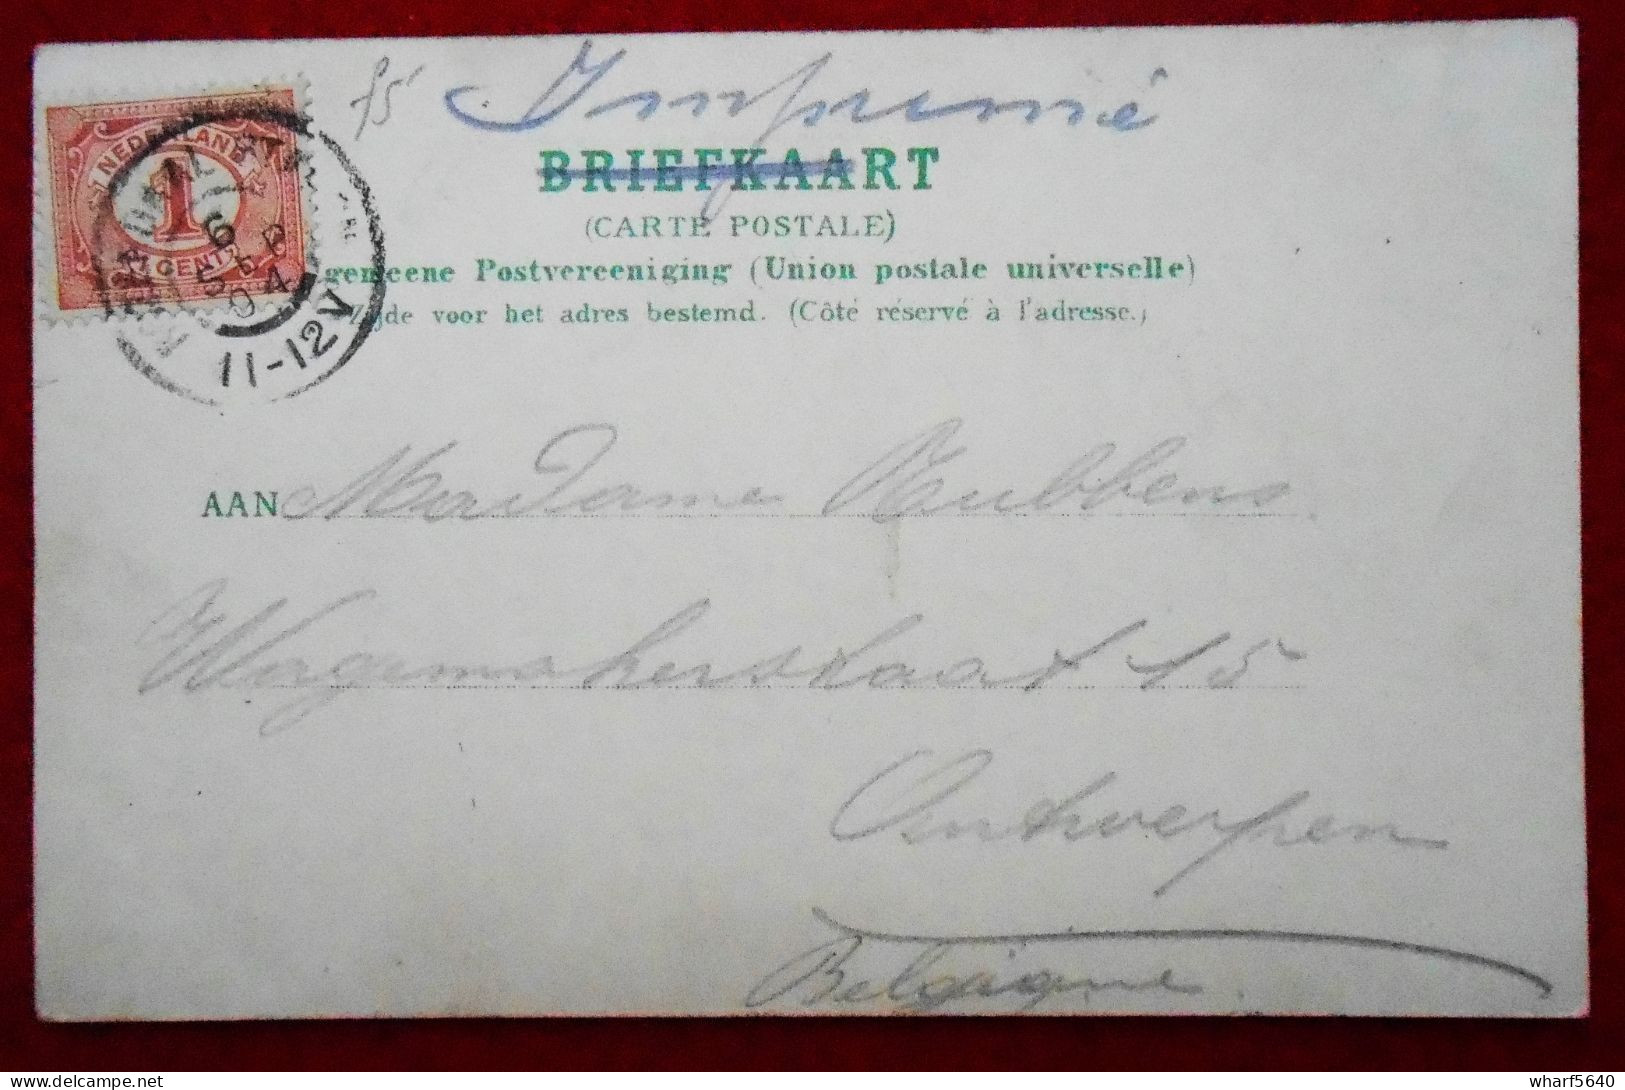 f5
Imprimé
BRIEFKAART
(CARTE POSTALE)
gemeene Postvereeniging (Union postale universelle)
Zijde voor het adres bestemd. (Côté réservé à l'adresse.)
NEDERLAND
1
1 CENT
6
SEP
04
11-12V
AAN Madame Rubbens
Wagemakerstraat 15
Antwerpen
Belgique.
wharf5640